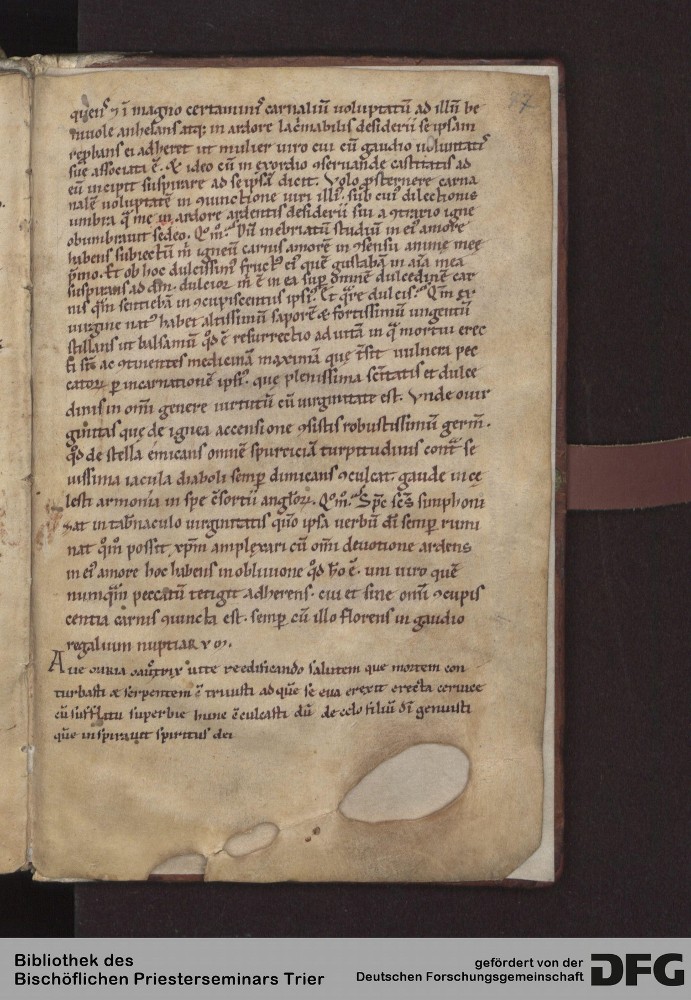 37
quens & ī magno certamine carnaliū uoluptatū ad illū be
niuole anhelans atq; in ardore lacrimabilis desiderii se ipsam
ei adheret ut mulier uiro cui cū gaudio uoluntatis
sue associata ē. Et ideo cū in exordio ꝯseruande castitatis ad
eū incipit suspirare ad se ipsā dicit. Volo ꝓsternere carna
nalē uoluptatē in ꝯiunctione uiri illi. sub cui dilectionis
umbra que me in ardore ardentis desiderii sui a ꝯtrario igne
obumbrauit sedeo. inebriatū studiū in ei amore
habens subiectū igneū carnis amorē in ꝯsensu anime mee
p̄mo. Et ob hoc dulcissimꝰ fructꝰ eiꝰ quē gustabā in aīa mea
suspirans ad dm̄. dulcior m̄ ē in ea sup omnē dulcedinē car
nis quā sentiebā in ꝯcupiscentiis ipsiꝰ. Et q̄re dulcis? Qm̄ ex
uirgine natꝰ habet altissimū saporē & fortissimū ungentū
stillans ut balsamū qd̄ ē resurrectio ad uitā in q̄ mortui erec
ti st̄ ac ꝯtinentes medicinā maximā que t̄sit uulnera pec
catorꝝ ꝑ incarnationē ipsiꝰ. que plenissima sc̄itatis et dulce
dinis in om̄i genere uirtutū cū uirginitate est. Vnde o uir
ginitas que de ignea accensione ꝯsistis robustissimū germē.
qd̄ de stella emicans omnē spurciciā turpitudinis cont̄ se
uissima iacula diaboli semꝑ dimicans ꝯculcat. gaude in ce
lesti armonia in spe ꝯsortii anglorꝝ. Qom? Spc scs simphoni
zat in tab̄naculo uirginitatis q̄m ipsa uerbū dī semꝑ rumi
nat qm̄ possit xp̄m amplexari cū om̄i deuotione ardens
in eiꝰ amore hoc habens in obliuione qd̄ ho ē. uni uiro quē
nunquā peccatū tetigit adherens. cui et sine om̄i ꝯcupis
centia carnis ꝯiuncta est. semꝑ cū illo florens in gaudio
regalium nuptiarꝝ
Aue Maria o auctrix uite reedificando salutem que mortem con
turbasti & serpentem ꝯtriuisti ad quē se eua erexit erecta ceruice
cū sufflatu superbie hunc ꝯculcasti dū de celo filiū dī genuisti
quē inspirauit spiritus dei
Bibliothek des
Bischöflichen Priesterseminars Trier
gefördert von der
Deutschen Forschungsgemeinschaft
DFG